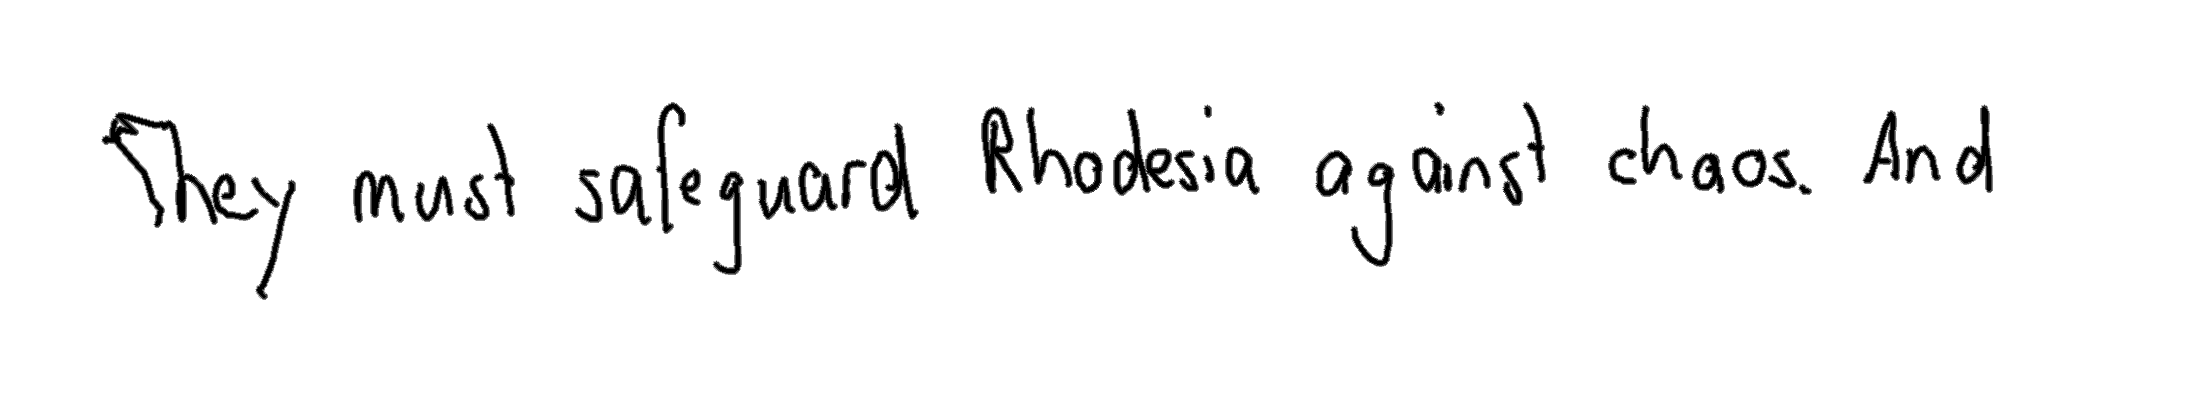 They must safeguard Rhodesia against chaos. And